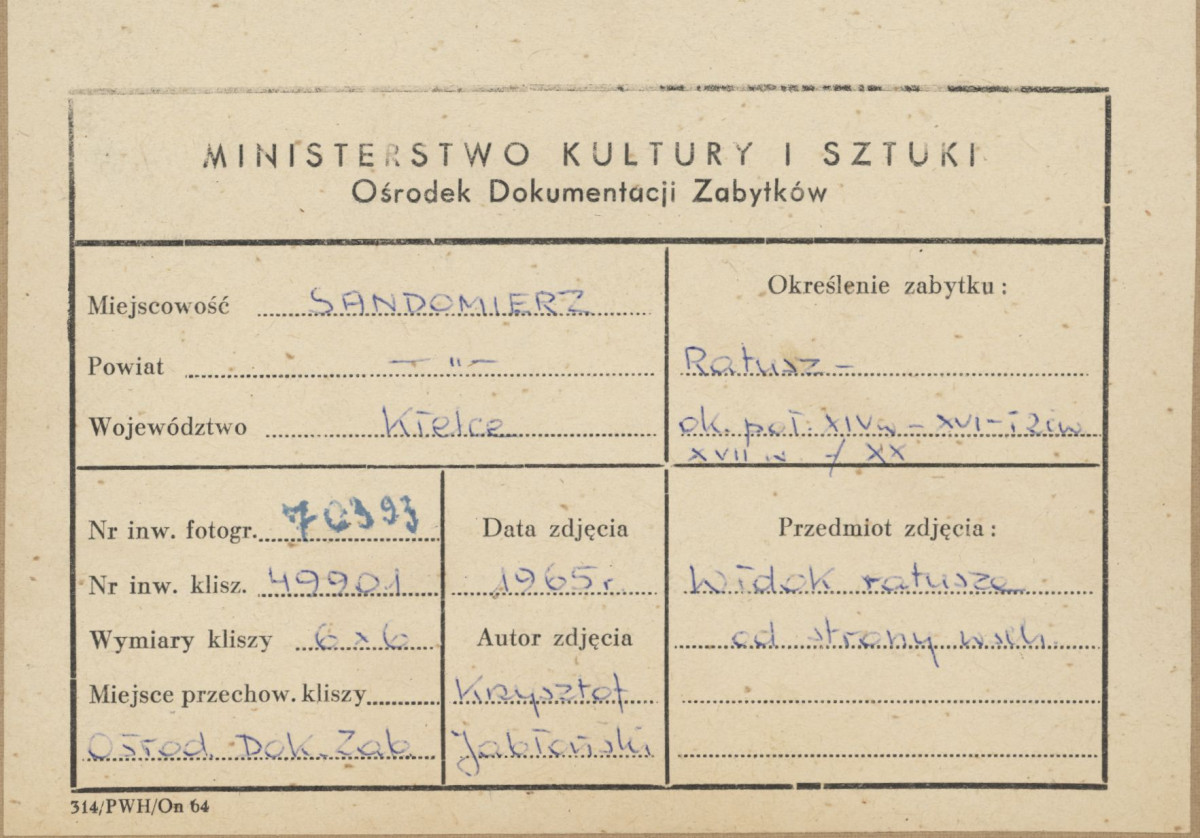 MINISTERSTWO KULTURY I SZTUKI
Ośrodek Dokumentacji Zabytków
Miejscowość SANDOMIERZ
Powiat — " —
Województwo Kielce
Określenie zabytku:
Ratusz —
ok. poł. XIV w — XVI — i 2 ćw
XVII w / XX
Nr inw. fotogr. 70393
Nr inw. klisz. 49901
Wymiary kliszy 6 x 6
Miejsce przechow. kliszy
Ośrod. Dok. Zab.
Data zdjęcia
1965 r.
Autor zdjęcia
Krzysztof
Jabłoński
Przedmiot zdjęcia:
Widok ratusza
od strony wsch.
314/PWH/On 64